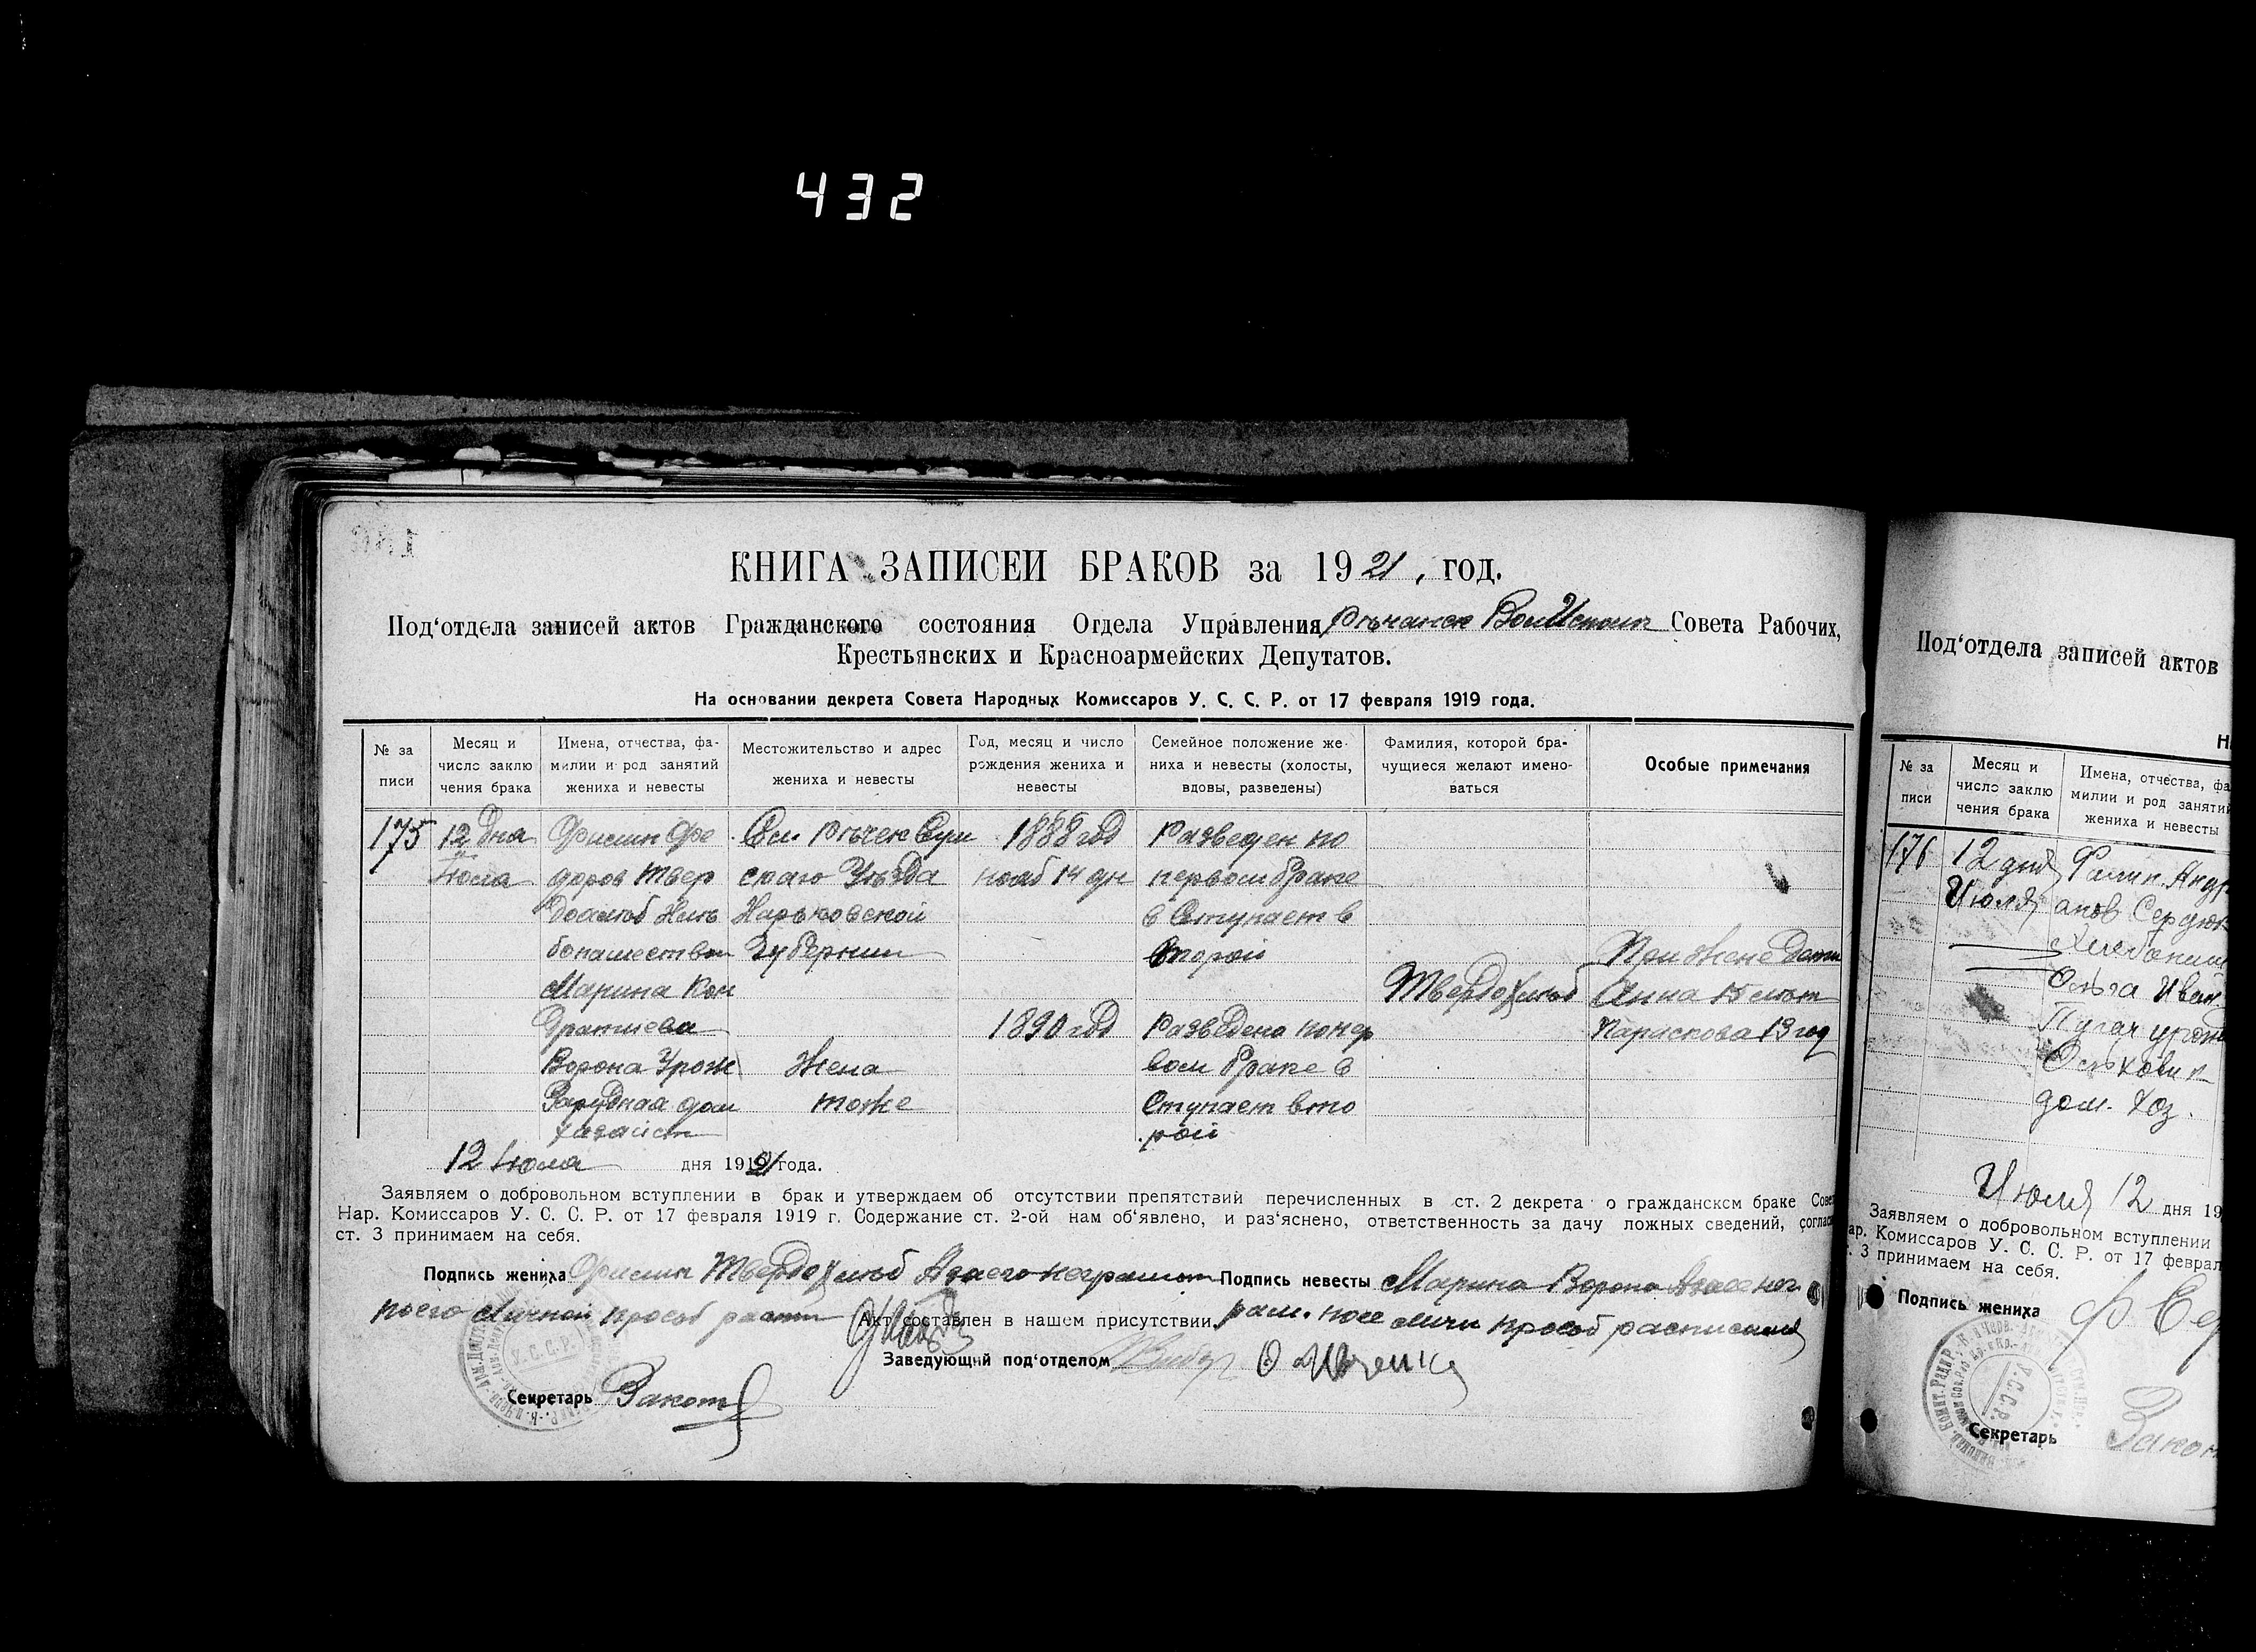 432
КНИГА ЗАПИСЕИ БРАКОВ за 1921, год.
Под‘отдела записей актов Гражданского состояния Отдела Управления Совета Рабочих,
Крестьянских и Красноармейских Депутатов.
На основании декрета Совета Народных Комиссаров У. С. С. Р. от 17 февраля 1919 года.
№ за писи
Месяц и число заклю чения брака
Имена, отчества, фа- милии и род занятий жениха и невесты
Местожительство и адрес жениха и невесты
Год, месяц и число рождения жениха и невесты
Семейное положение же- ниха и невесты (холосты, вдовы, разведены)
Фамилия, которой бра- чущиеся желают имено- ваться
Особые примечания
175
12 дна
Июла
Филип Фе
доров Твер
дохлеб Хле
бопашество
Марина Кон
дратиева
Ворона Урож
Зарудная дом
хазайст
Сл. Речек Сум
скаго Уезда
Харьковской
Губернии
Жена
тоже
1888 год
нояб 14 дн
1890 год
Разведен по
первом браке
в Ступает в
второй
Разведена попер
вом браке в
Ступает вто
рой
Твердохлеб
При жене дети
Анна
Параскова 13 год
12 Июла дня 1921 года.
Заявляем о добровольном вступлении в брак и утверждаем об отсутствии препятствий перечисленных в ст. 2 декрета о гражданском браке Совет
Нар. Комиссаров У. С. С. Р. от 17 февраля 1919 г. Содержание ст. 2-ой нам об‘явлено, и раз‘яснено, ответственность за дачу ложных сведений, соглас
ст. 3 принимаем на себя.
Подпись жениха Филип Твердохлеб А заего неграмот Подпись невесты Марина Ворона
поего личной прозб Акт составлен в нашем присутствии. рам. поее личн прозб расписался
Заведующий под‘отделом
Секретарь
У.С.С.Р.
Под‘отдела записей актов
№ за писи
Месяц и число заклю чения брака
Имена, отчества, фа милии и род занятий жениха и невесты
176
12 дня
Июля
Филип. Андр
Сердюк
Ольга Иван.
Пугач урожд
дом. хоз.
Июля 12 дня 19
Заявляем о добровольном вступлении
ар. Комиссаров У. С. С. Р. от 17 феврал
т. 3 принимаем на себя.
Подпись жениха Ф. Сер
У.С.С.Р.
Секретарь